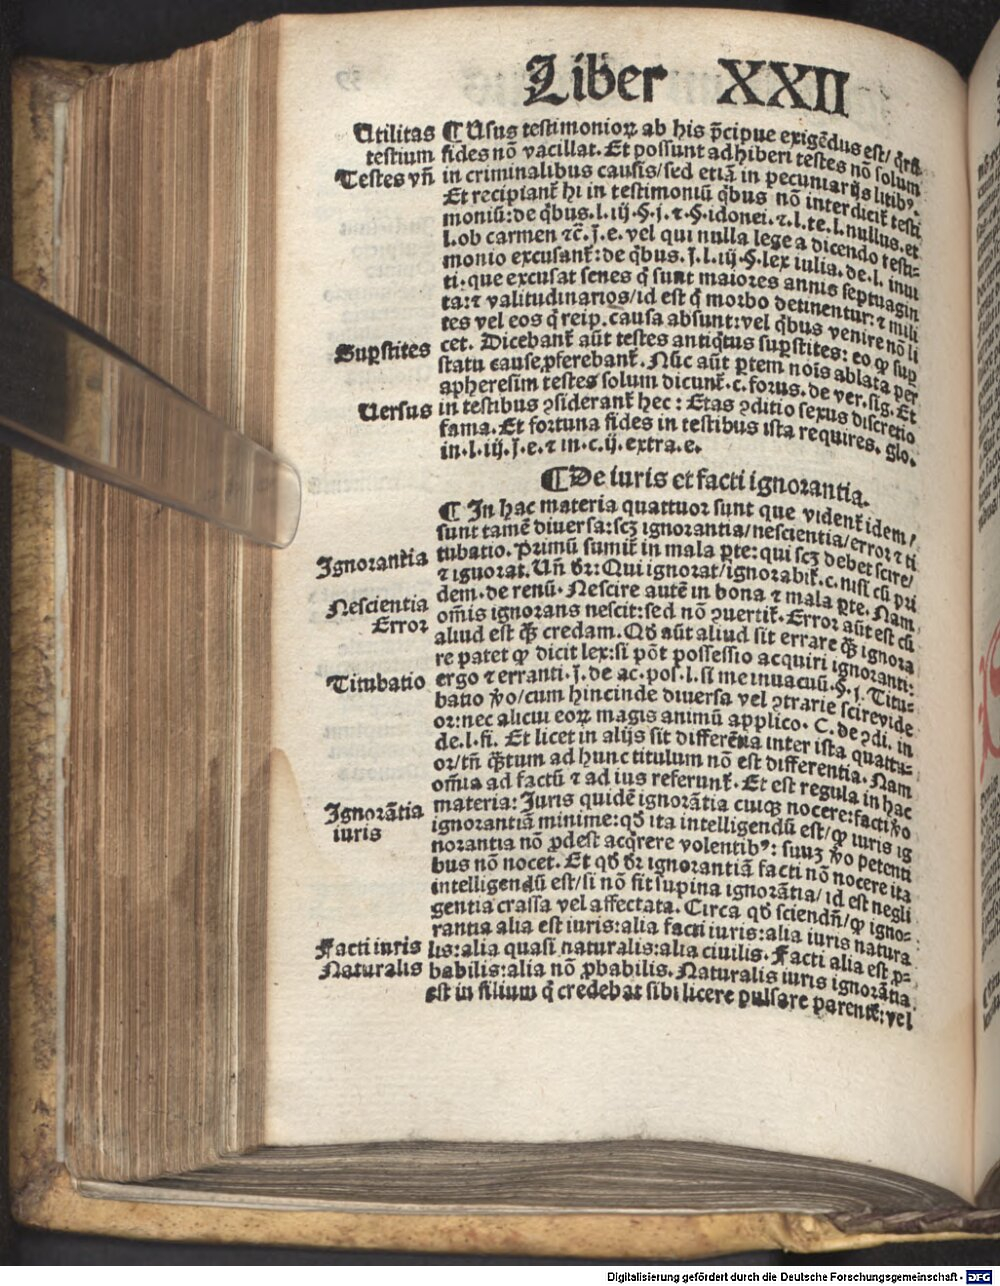 Liber XXII
Utilitas testium
¶ Usus testimonioꝝ ab his p̄cipue exigēdus est/ q̄rū
fides nō vacillat. Et possunt adhiberi testes nō solum
Testes vn̄
in criminalibus causis/sed etiā in pecuniarijs litibꝰ.
Et recipiant̉ hi in testimoniū q̇bus nō interdicit̉ testi
moniū:de q̇bus.l.iij.§.j.⁊.§.idonei.⁊.l.te.l.nullus.et
l.ob carmen ⁊c̄.j̄.e.vel qui nulla lege a dicendo testi-
monio excusant̉:de q̇bus.j̄.l.iij.§.lex iulia.de.l. inui
ti:que excusat senes q̇ sunt maiores annis septuagin
ta:⁊ valitudinarios/id est q̇ morbo detinentur:⁊ mili
tes vel eos q̇ reip.causa absunt:vel q̇bus venire nō li
Suꝑstites
cet. Dicebant̉ aūt testes antiq̇tus suꝑstites: eo ꝙ suꝑ
statu cause ꝓferebant̉. Nūc aūt ꝑtem nois ablata ꝑer
apheresim testes solum dicunt̉.c.forus.de ver.sig. Et
Versus
in testibus ꝯsiderant̉ hec: Etas ꝯditio sexus discretio
fama. Et fortuna fides in testibus ista requires. glo.
in.l.iij.j̄.e.⁊ in.c.ij.extra.e.
¶ De iuris et facti ignorantia.
¶ In hac materia quattuor sunt que vident̉ idem/
sunt tamē diuersa:scꝫ ignorantia/nescientia/error ⁊ ti
Ignorantia
tubatio. Primū sumit̉ in mala ꝑte:qui scꝫ debet scire/
⁊ ignorat. Un̄ dr̄: Qui ignorat/ignorabit̉.c.nisi cū pri
Nescientia
dem.de renū. Nescire autē in bona ⁊ mala ꝑte. Nam
Error
om̄is ignorans nescit:sed nō ꝯuertit̉. Error aūt est cū
aliud est q̄ꝫ credam. Qd̄ aūt aliud sit errare q̄ꝫ ignora
re patet ꝙ dicit lex:si pōt possessio acquiri ignoranti:
Titubatio
ergo ⁊ erranti.j̄.de ac.pos.l.si me in vacuū.§.j. Titu-
batio v̊o/cum hincinde diuersa vel ꝯtrarie scire vide
or:nec alicui eoꝝ magis animū applico. C. de ꝯdi. in
de.l.fi. Et licet in alijs sit differētia inter ista quattu-
or/tn̄ q̄ꝫtum ad hunc titulum nō est differentia. Nam
om̄ia ad factū ⁊ ad ius referunt̉. Et est regula in hac
Ignorātia iuris
materia: Iuris quidē ignorātia cuiqꝫ nocere:facti v̊o
ignorantiā minime:qd̄ ita intelligendū est/ꝙ iuris ig
norantia nō ꝓdest acq̇rere volentibꝰ: suuꝫ v̊o petenti
bus nō nocet. Et qd̄ dr̄ ignorantiā facti nō nocere ita
intelligendū est/si nō sit supina ignorātia/id est negli
gentia crassa vel affectata. Circa qd̄ sciendn̄/ꝙ igno-
rantia alia est iuris:alia facti iuris:alia iuris natura
Facti iuris
lis:alia quasi naturalis:alia ciuilis. Facti alia est ꝓ-
Naturalis
babilis:alia nō ꝓbabilis. Naturalis iuris ignorātia
est in filium q̇ credebat sibi licere pulsare parentē:vel
Digitalisierung gefördert durch die Deutsche Forschungsgemeinschaft - DFG